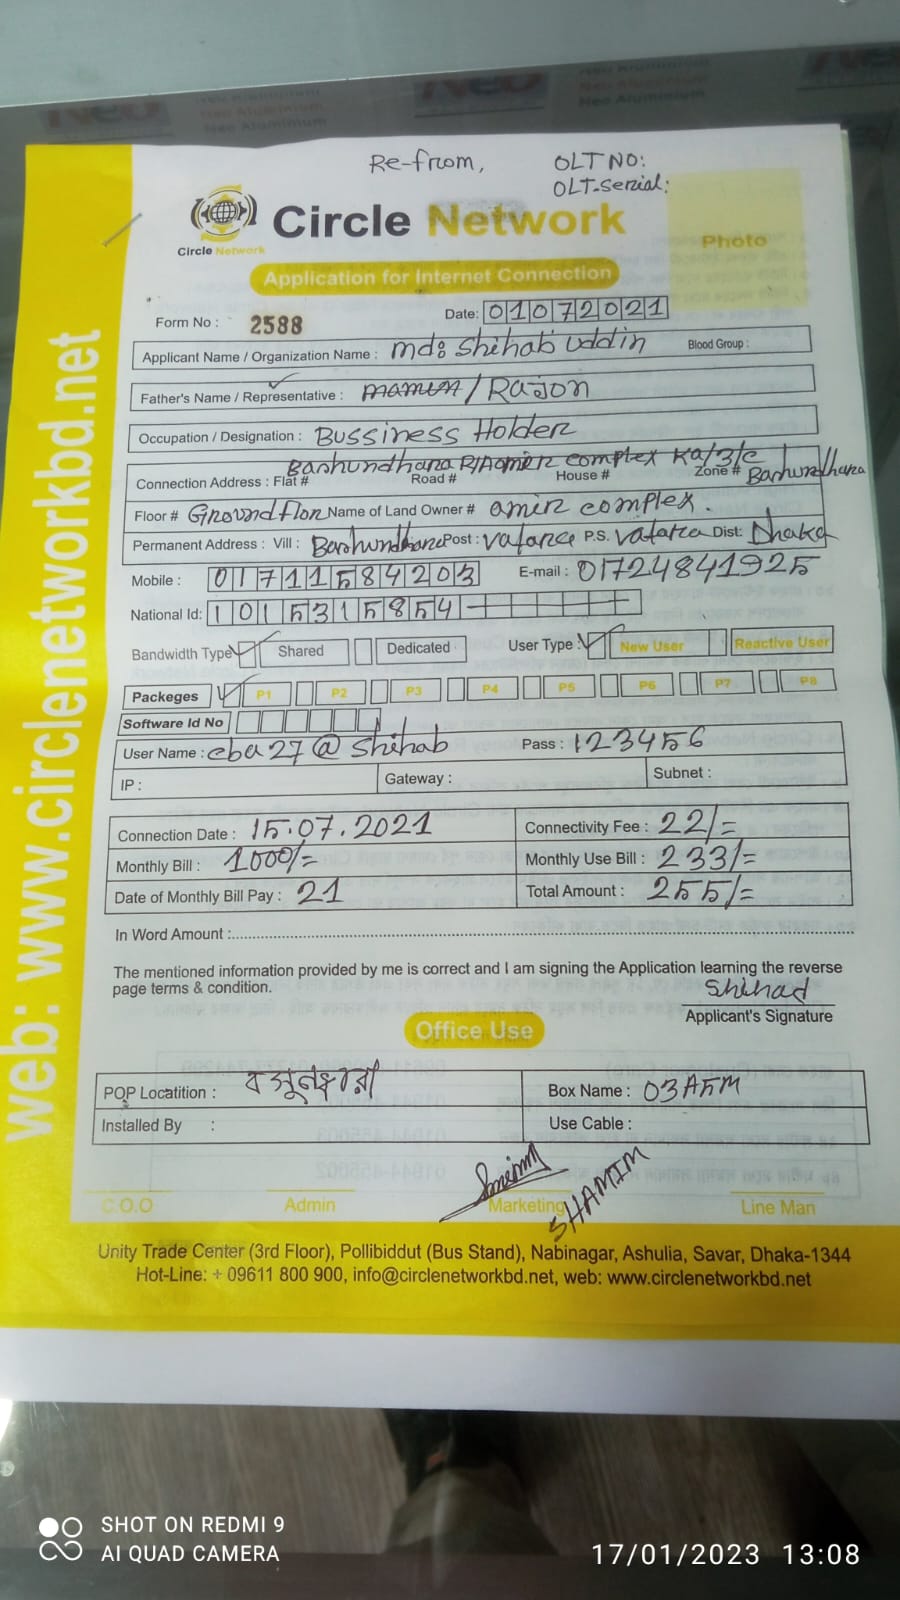 Neo Aluminium
Re-from,
OLT NO:
OLT-serial:
Circle Network
Circle Network
Photo
Application for Internet Connection
Form No : 2588
Date: 01072021
Applicant Name / Organization Name : md: Shihab uddin Blood Group :
Father's Name / Representative : mamun / Rajon
Occupation / Designation : Bussiness Holder
Bashundhara R/A amir complex Ka/3/c
Connection Address : Flat # Road # House # Zone # Bashundhara
Floor # Groundflor Name of Land Owner # amir complex.
Permanent Address : Vill : Bashundhara Post : vatara P.S. vatara Dist: Dhaka
Mobile : 01711584203 E-mail : 01724841925
National Id: 1015315854
Bandwidth Type Shared Dedicated User Type : New User Reactive User
Packeges P1 P2 P3 P4 P5 P6 P7 P8
Software Id No
User Name : cba27@shihab Pass : 123456
IP : Gateway : Subnet :
Connection Date : 15.07.2021 Connectivity Fee : 22/=
Monthly Bill : 1000/= Monthly Use Bill : 233/=
Date of Monthly Bill Pay : 21 Total Amount : 255/=
In Word Amount :
The mentioned information provided by me is correct and I am signing the Application learning the reverse
page terms & condition.
Shihad
Applicant's Signature
Office Use
POP Locatition : বসুন্ধরা Box Name : 03AFM
Installed By : Use Cable :
SHAMIM
C.O.O Admin Marketing Line Man
Unity Trade Center (3rd Floor), Pollibiddut (Bus Stand), Nabinagar, Ashulia, Savar, Dhaka-1344
Hot-Line: + 09611 800 900, info@circlenetworkbd.net, web: www.circlenetworkbd.net
web: www.circlenetworkbd.net
SHOT ON REDMI 9
AI QUAD CAMERA
17/01/2023 13:08